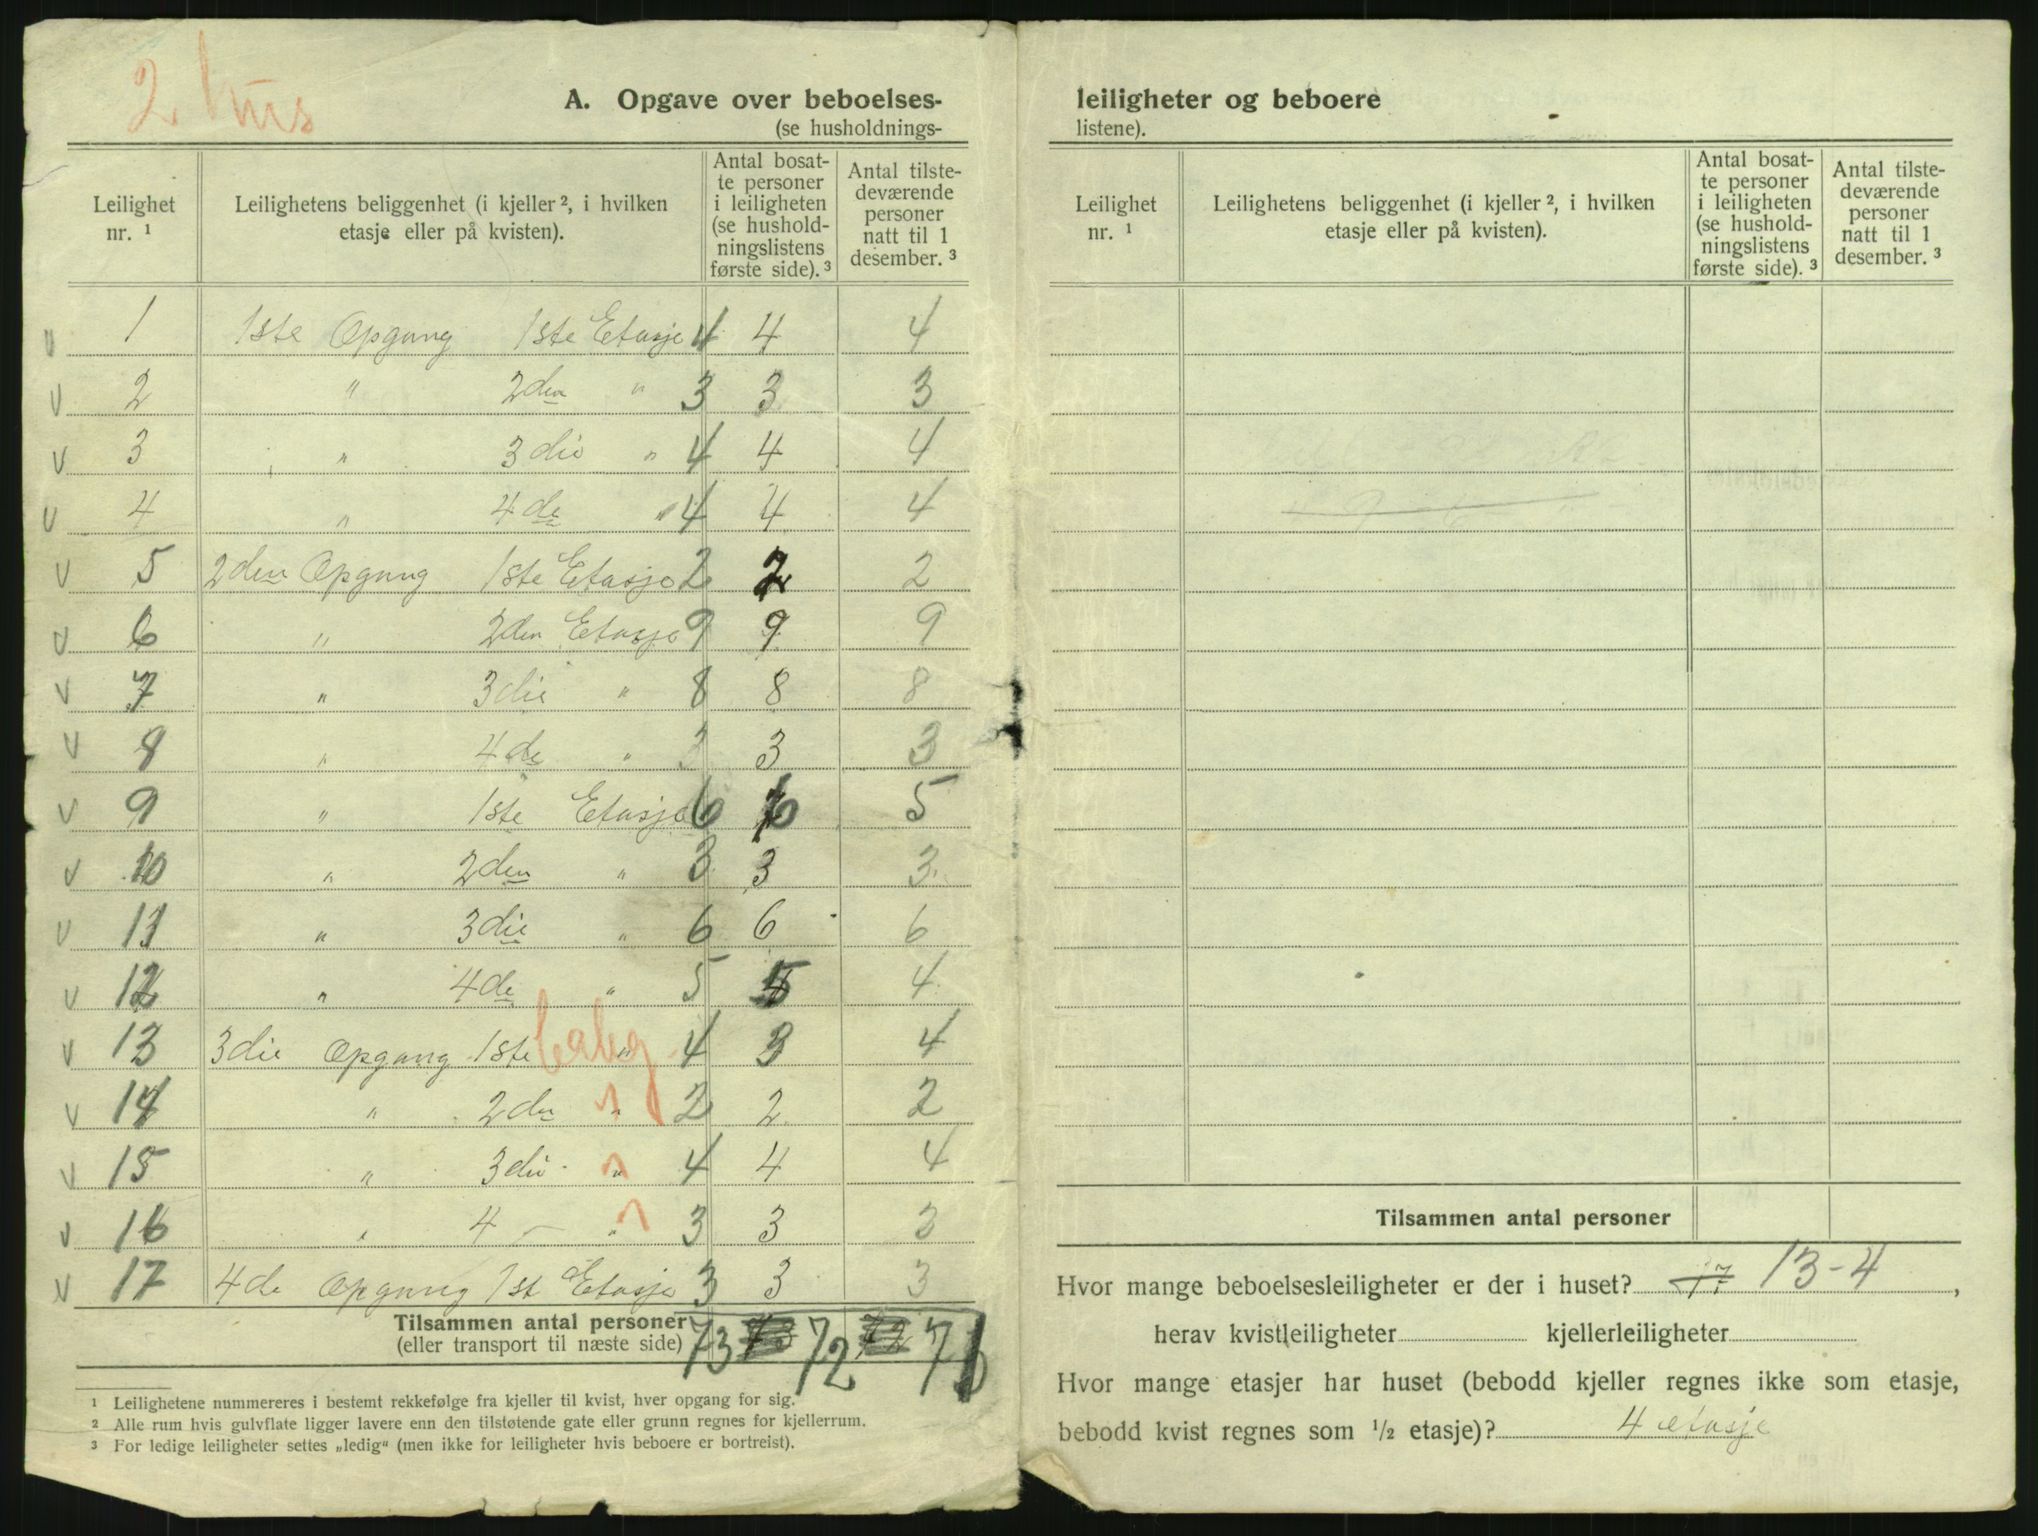 2 hus
A. Opgave over beboelses-
(se husholdnings-
Leilighet nr. 1
Leilighetens beliggenhet (i kjeller 2, i hvilken etasje eller på kvisten).
Antal bosat-te personer i leiligheten (se hushold-ningslistens første side). 3
Antal tilste-deværende personer natt til 1 desember. 3
v 1 1ste Opgang 1ste Etasje 4 4 4
v 2 " 2den " 3 3 3
v 3 " 3die " 4 4 4
v 4 " 4de " 4 4 4
v 5 2den Opgang 1ste Etasje 2 2 2
v 6 " 2den Etasje 9 9 9
v 7 " 3die " 8 8 8
v 8 " 4de " 3 3 3
v 9 " 1ste Etasje 6 6 5
v 10 " 2den " 3 3 3
v 11 " 3die " 6 6 6
v 12 " 4de " 5 5 4
v 13 3die Opgang 1ste " 4 3 4
v 14 " 2den " 2 2 2
v 15 " 3die " 4 4 4
v 16 " 4 — " 3 3 3
v 17 4de Opgang 1ste Etasje 3 3 3
Tilsammen antal personer
(eller transport til næste side) 73 72 71
1 Leilighetene nummereres i bestemt rekkefølge fra kjeller til kvist, hver opgang for sig.
2 Alle rum hvis gulvflate ligger lavere enn den tilstøtende gate eller grunn regnes for kjellerrum.
3 For ledige leiligheter settes „ledig" (men ikke for leiligheter hvis beboere er bortreist).
leiligheter og beboere
listene).
Leilighet nr. 1
Leilighetens beliggenhet (i kjeller 2, i hvilken etasje eller på kvisten).
Antal bosat-te personer i leiligheten (se hushold-ningslistens første side). 3
Antal tilste-deværende personer natt til 1 desember. 3
Tilsammen antal personer
Hvor mange beboelsesleiligheter er der i huset? 17 13-4,
herav kvistleiligheter kjellerleiligheter
Hvor mange etasjer har huset (bebodd kjeller regnes ikke som etasje,
bebodd kvist regnes som 1/2 etasje)? 4 etasje